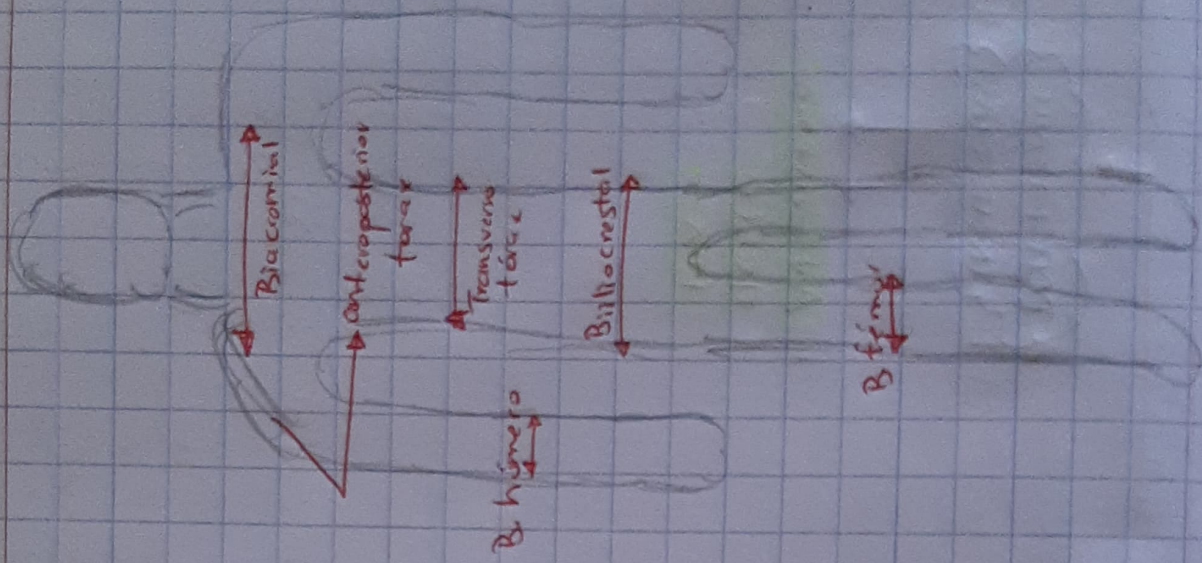 Biacromial
anteroposterior
torax
Transverso
tórax
Biiliocrestal
B húmero
B fémur